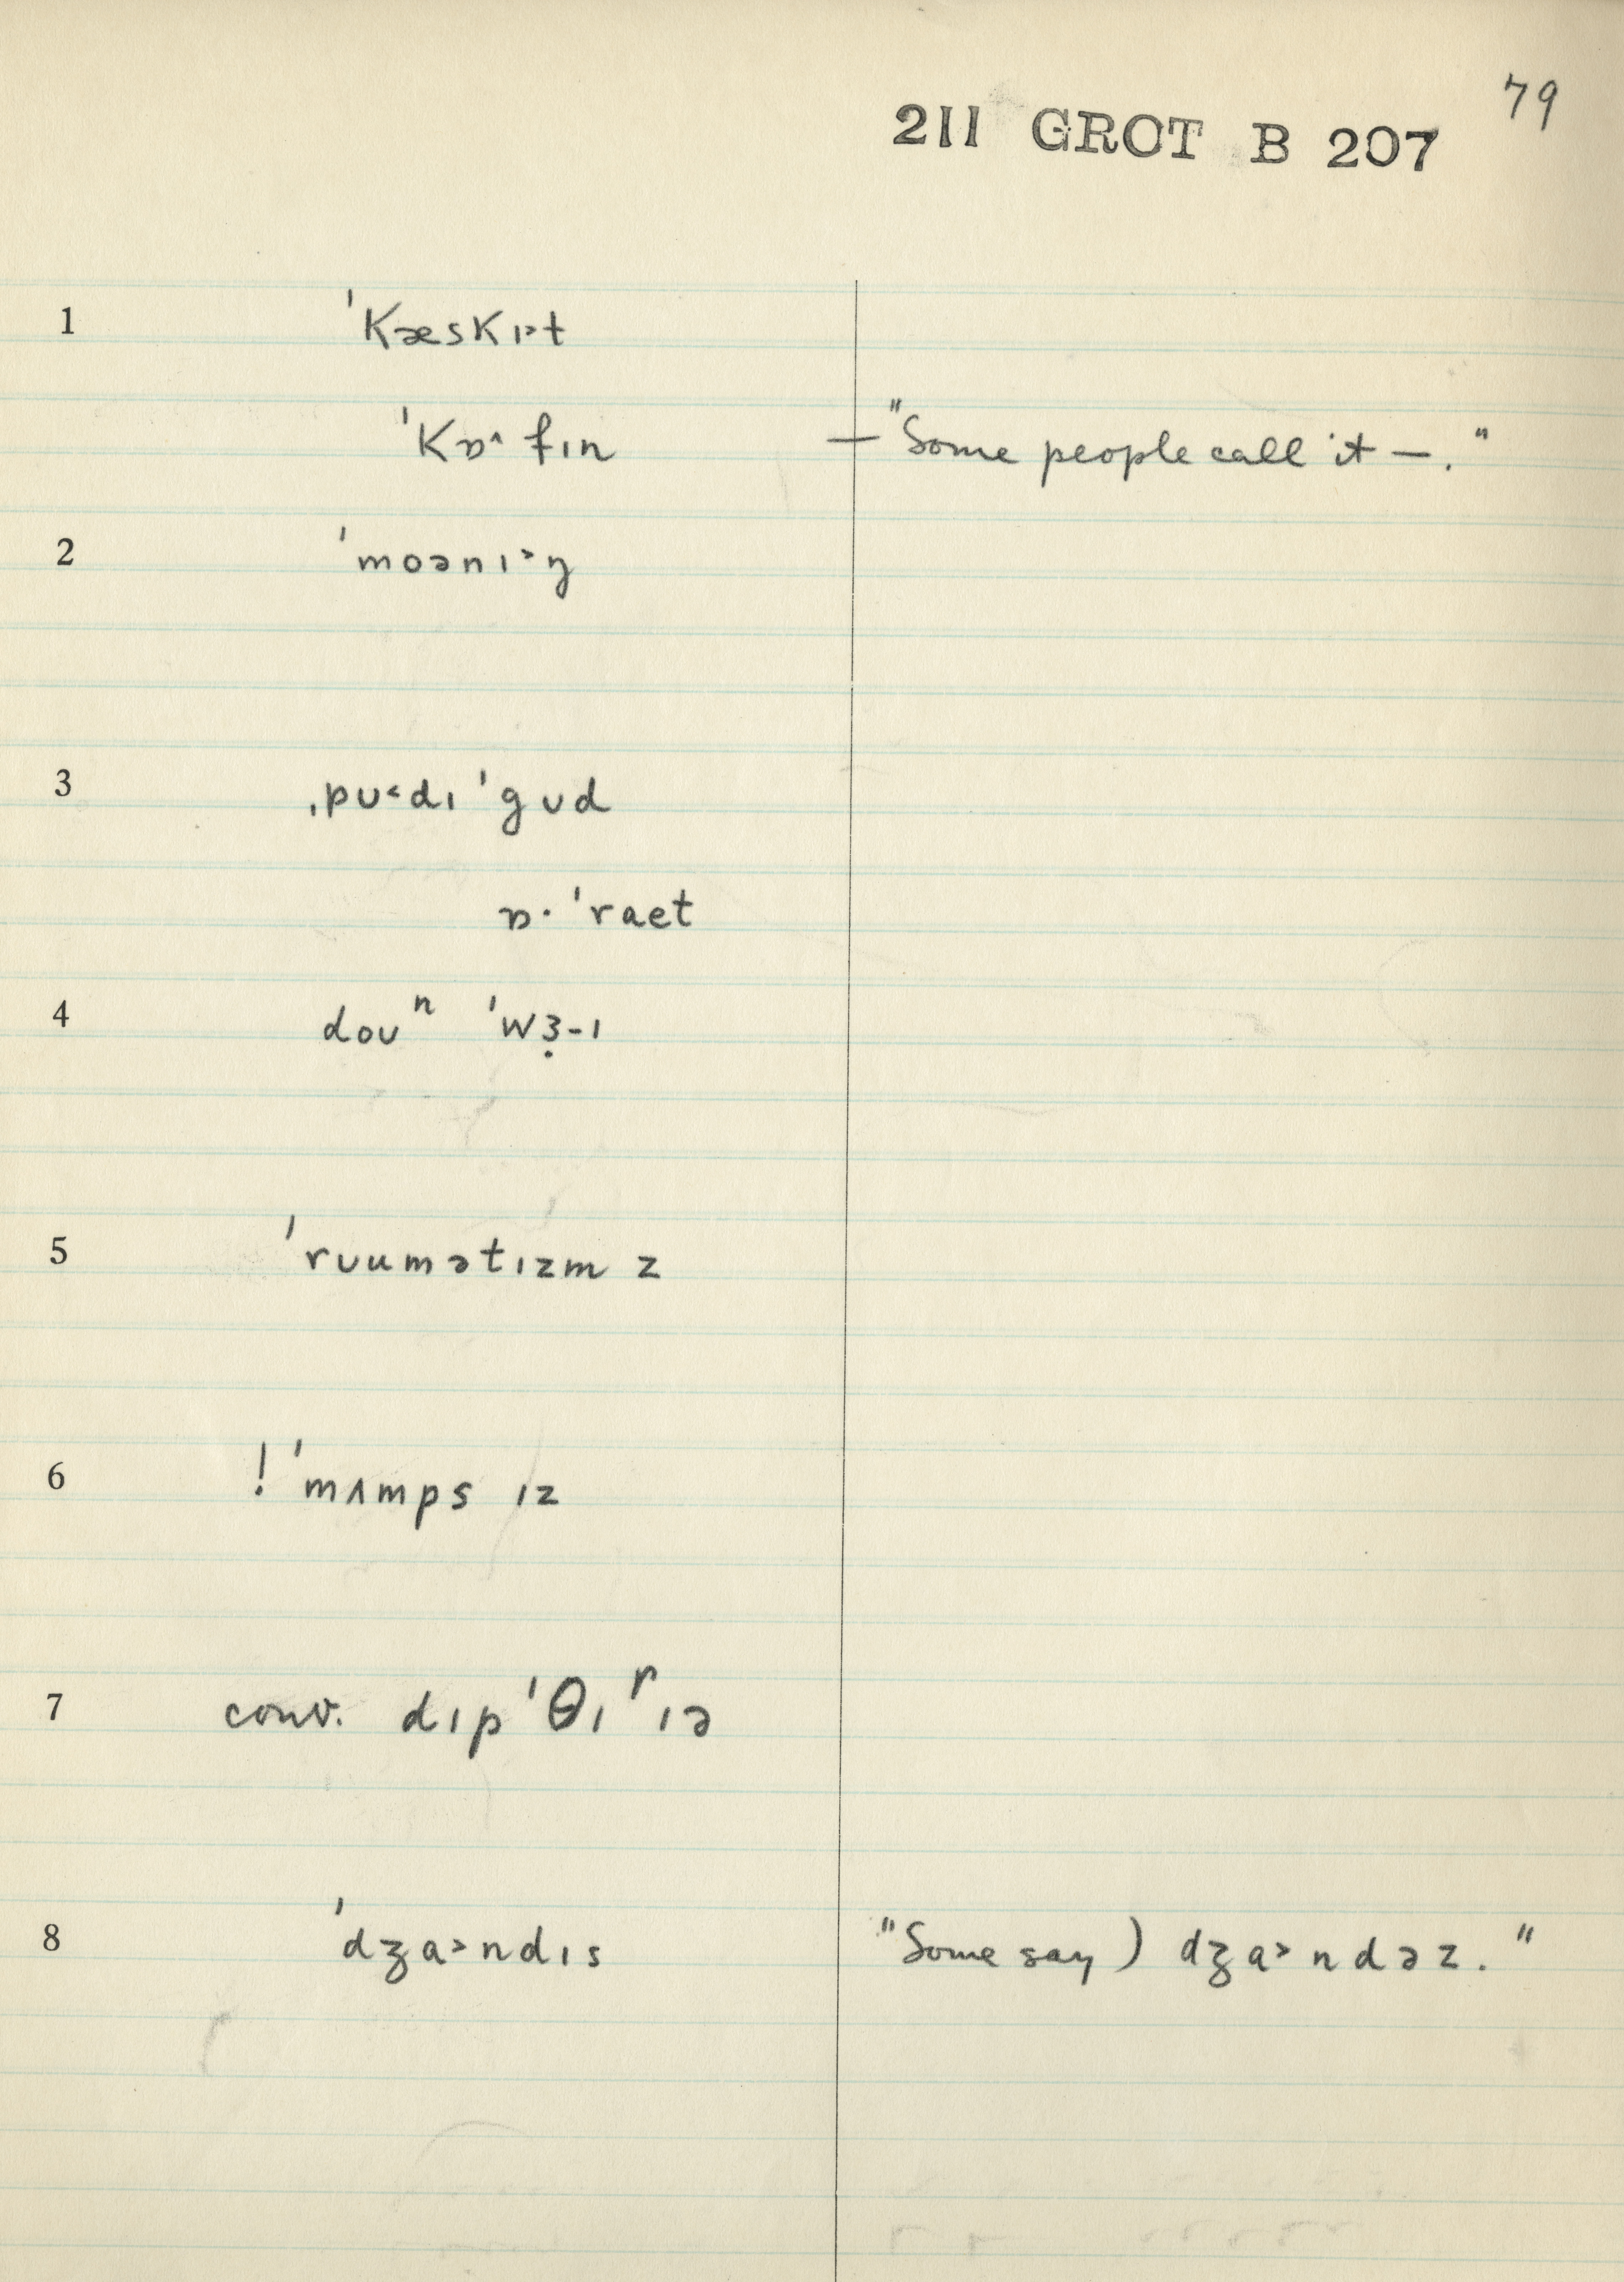 79
211 GROT B 207
1 ˈkæskɪ˃t
ˈkɒ˄fɪn — "Some people call it —."
2 ˈmoənɪ˃ŋ
3 ˌpʊ˂dɪ ˈgʊd
ɒ· ˈraet
4 doʊⁿ ˈwɜ̣-ɪ
5 ˈrʊumətɪzm z
6 ! ˈmʌmps ɪz
7 conv. dɪpˈθɪʳɪə
8 ˈdʒa˃ndɪs "Some say) dʒa˃ndəz."